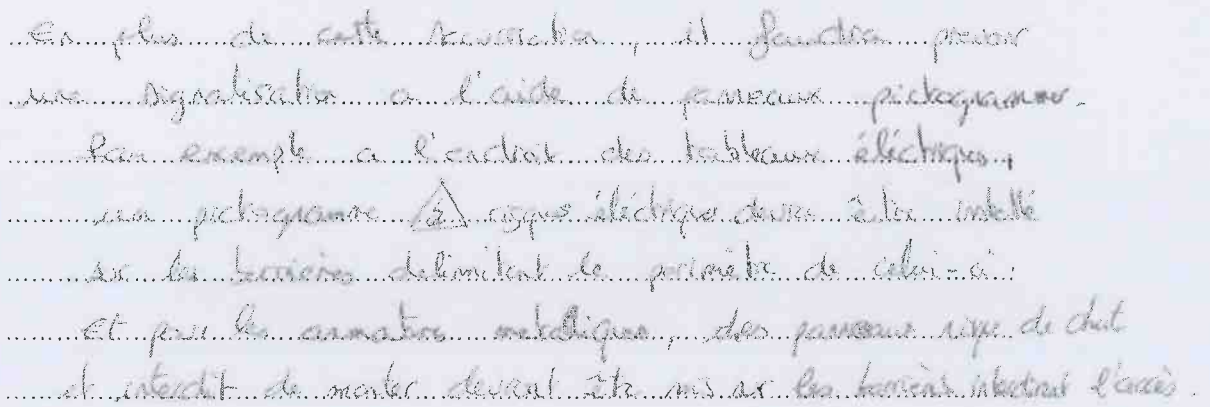 En plus de cette sécurisation, il faudra prévoir
une signalisation a l'aide de panneaux pictogrammes.
Par exemple a l'endroit des tableaux éléctriques,
un pictogramme risques éléctriques devra être installé
sur les barrières délimitant le périmètre de celui-ci.
Et pour les armatures metalliques, des panneaux risque de chut
et interdit de monter devront être mis sur les barrières interdisant l'accès.